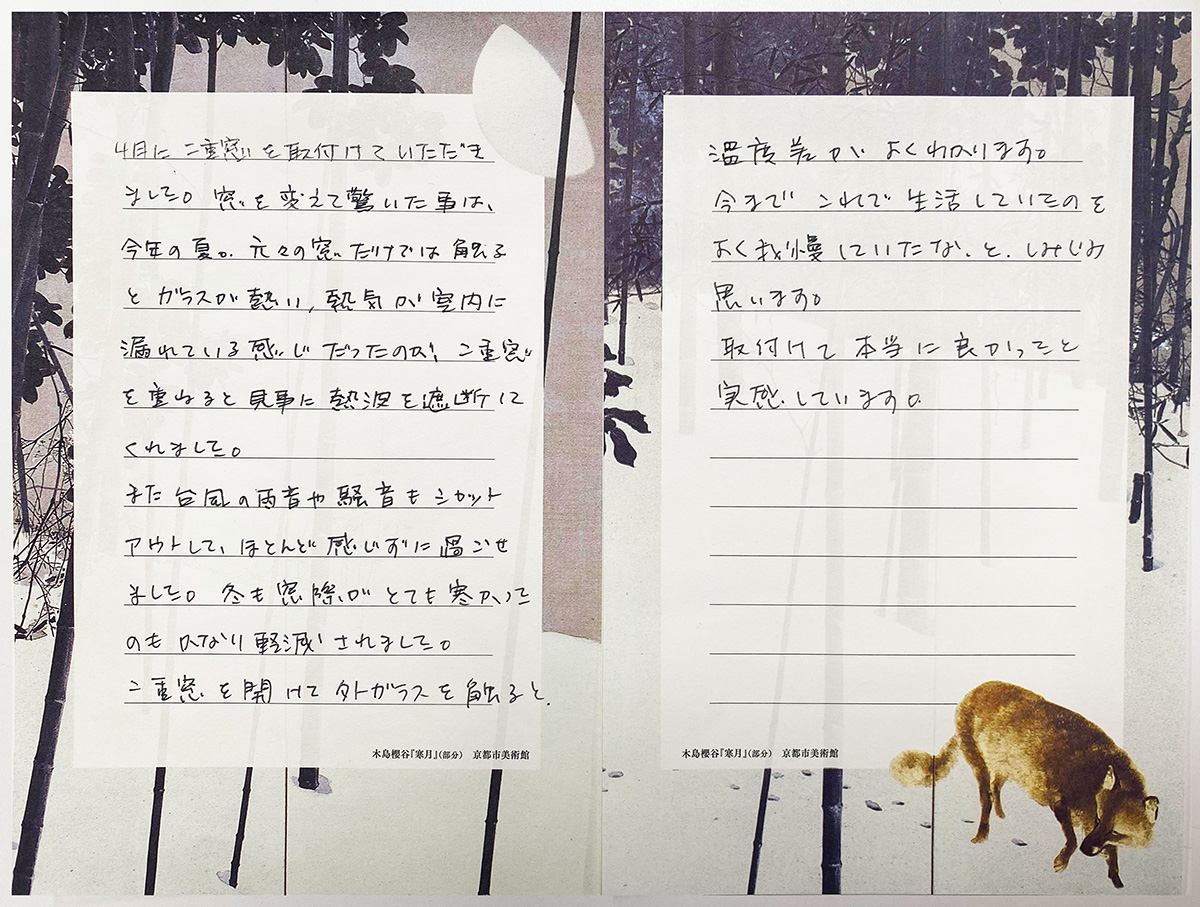 4月に二重窓を取付けていただき
ました。窓を変えて驚いた事は、
今年の夏。元々の窓だけでは触る
とガラスが熱い、熱気が室内に
漏れている感じだったのが、二重窓
を重ねると見事に熱波を遮断して
くれました。
また台風の雨音や騒音もシャット
アウトして、ほとんど感じずに過ごせ
ました。冬も窓際がとても寒かった
のもかなり軽減されました。
二重窓を開けて外ガラスを触ると、
木島櫻谷『寒月』(部分) 京都市美術館
温度差がよくわかります。
今までこれで生活していたのを
よく我慢していたな、と、しみじみ
思います。
取付けて本当に良かったと
実感しています。
木島櫻谷『寒月』(部分) 京都市美術館